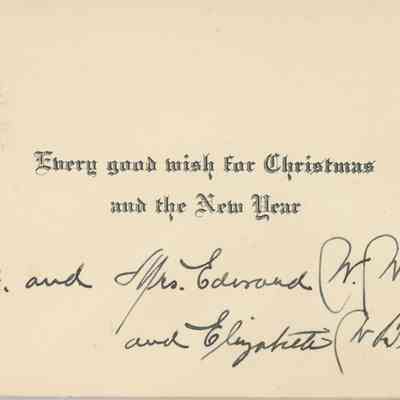 Every good wish for Christmas
and the New Year
. and Mrs. Edward W. W
and Elizabeth W